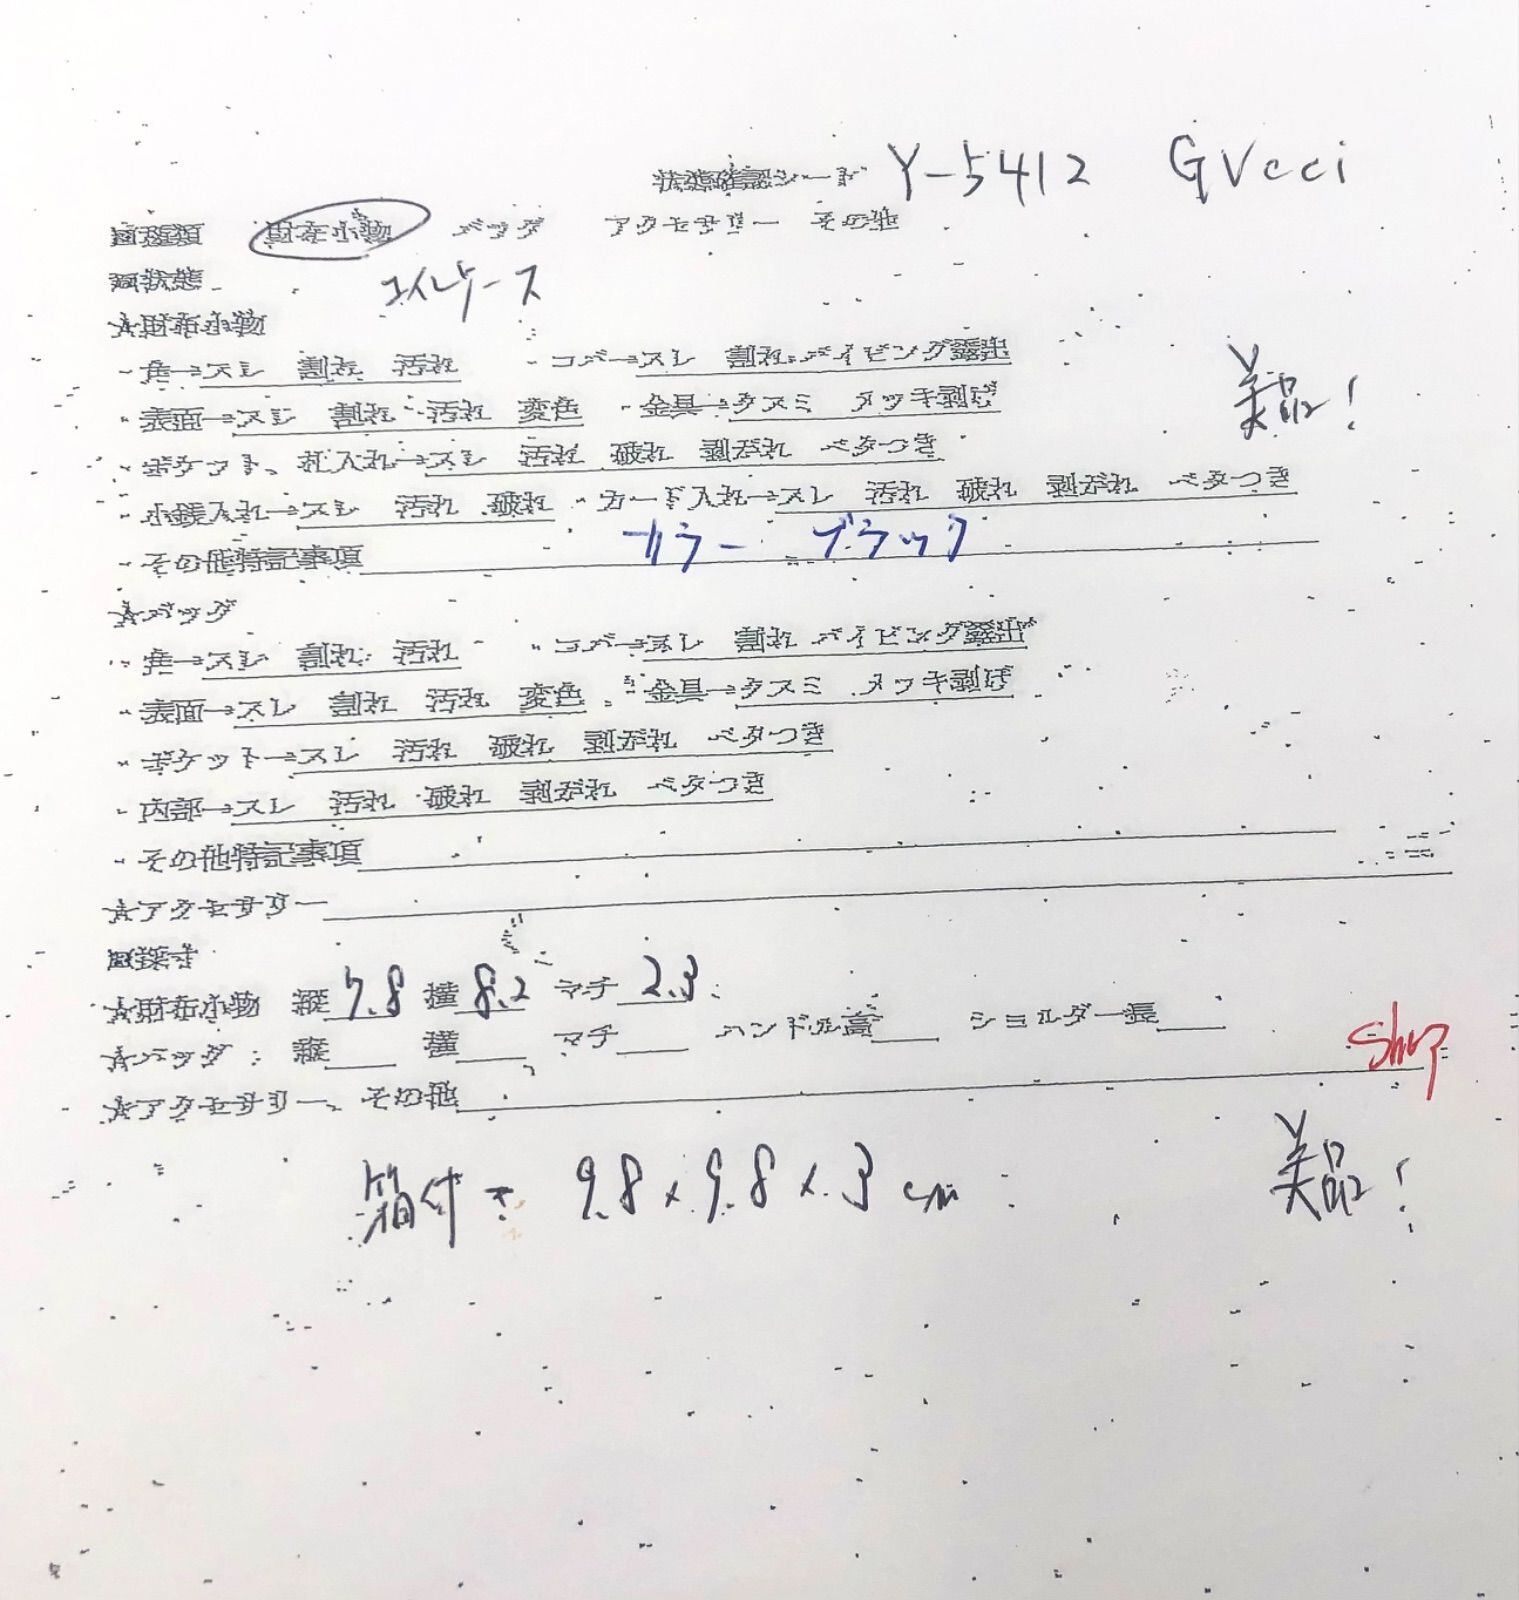 状態確認シート Y-5412 GVcci
■種類 財布小物 バッグ アクセサリー その他
■状態 コインケース
☆財布小物
・角→スレ 割れ 汚れ ・コバ→スレ 割れ パイピング露出
・表面→スレ 割れ 汚れ 変色 ・金具→クスミ メッキ剥げ
美品!
・ポケット、札入れ→スレ 汚れ 破れ 剥がれ ベタつき
・小銭入れ→スレ 汚れ 破れ ・カード入れ→スレ 汚れ 破れ 剥がれ ベタつき
・その他特記事項 カラー ブラック
☆バッグ
・角→スレ 割れ 汚れ ・コバ→スレ 割れ パイピング露出
・表面→スレ 割れ 汚れ 変色 ・金具→クスミ メッキ剥げ
・ポケット→スレ 汚れ 破れ 剥がれ ベタつき
・内部→スレ 汚れ 破れ 剥がれ ベタつき
・その他特記事項
☆アクセサリー
■採寸
☆財布小物 縦 7.8 横 8.2 マチ 2.3
☆バッグ 縦 横 マチ ハンドル高 ショルダー長
Shop
☆アクセサリー、その他
箱付 9.8 x 9.8 x 3 cm 美品!